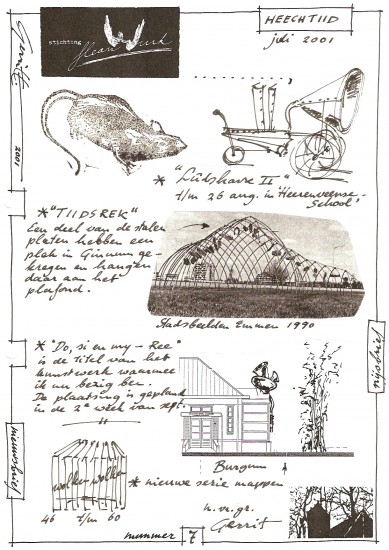 stichting
Heawurk
HEECHTIID
juli 2001
Gerrit
2001
* "Lûdskarre II"
t/m 26 aug. in 'Heerenveense
School'
* "TIIDSREK"
Een deel van de stalen
platen hebben een
plek in Ginnum ge-
kregen en hangen
daar aan het
plafond.
Stadsbeelden Emmen 1990
* "Do, si en my - Ree"
is de titel van het
kunstwerk waarmee
ik nu bezig ben.
De plaatsing is gepland
in de 2e week van sept.
nijsbrief
nieuwsbrief
wolken-wolken
46 t/m 60
Burgum
* nieuwe serie mappen
n. vr. gr.
Gerrit
nummer 7